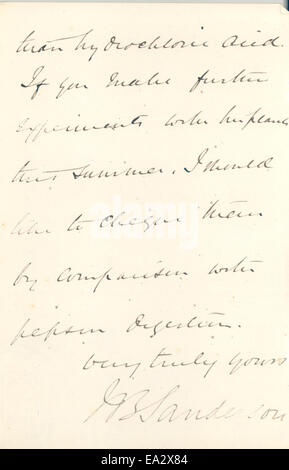 than hydrochloric acid.
If you make further
experiments with the plants
this summer, I should
like to them
by comparison with
pepsin digestion.
Very truly yours
JB Sanderson
alamy stock photo
EA2X84